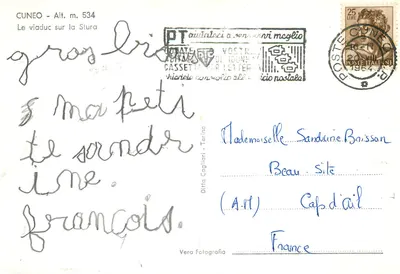 CUNEO - Alt. m. 534
Le viaduc sur la Stura
gros bi
s ma peti
te sandr
ine.
françois.
PT aiutateci a servirvi meglio
POSTE
1964
Ditta Cagliani - Torino
Vera Fotografia
Mademoiselle Sandrine Boisson
Beau-Site
(A-M) Cap d'ail
France